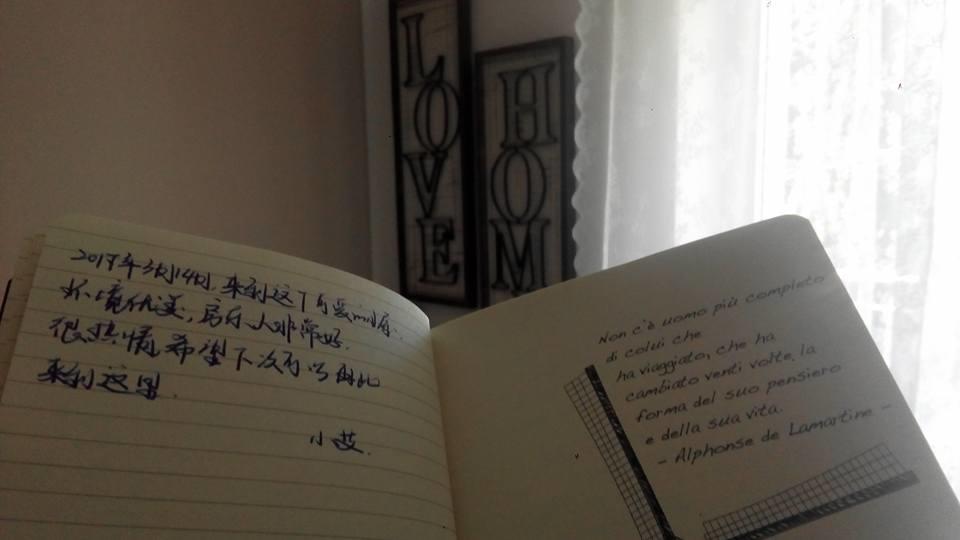 LOVE
HOM
2019年3月14日,来到这个可爱的房.
环境优美,房东人非常好.
很热情,希望下次可以再
来到这里.
小艾.
Non c'è uomo più completo
di colui che
ha viaggiato, che ha
cambiato venti volte, la
forma del suo pensiero
e della sua vita.
- Alphonse de Lamartine -